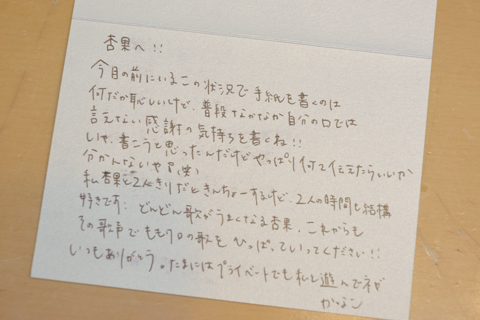 杏果へ!!
今目の前にいるこの状況で手紙を書くのは
何だか恥しいけど、普段なかなか自分の口では
言えない感謝の気持ちを書くね!!
いや、書こうと思ったんだけどやっぱり何て伝えたらいいか
分かんないや(笑)
私杏果と2人きりだときんちょーするけど、2人の時間も結構
好きです。どんどん歌がうまくなる杏果、これからも
その歌声でももクロの歌をひっぱっていってください!!
いつもありがとう。たまにはプライベートでも私と遊んでネ
かなこ